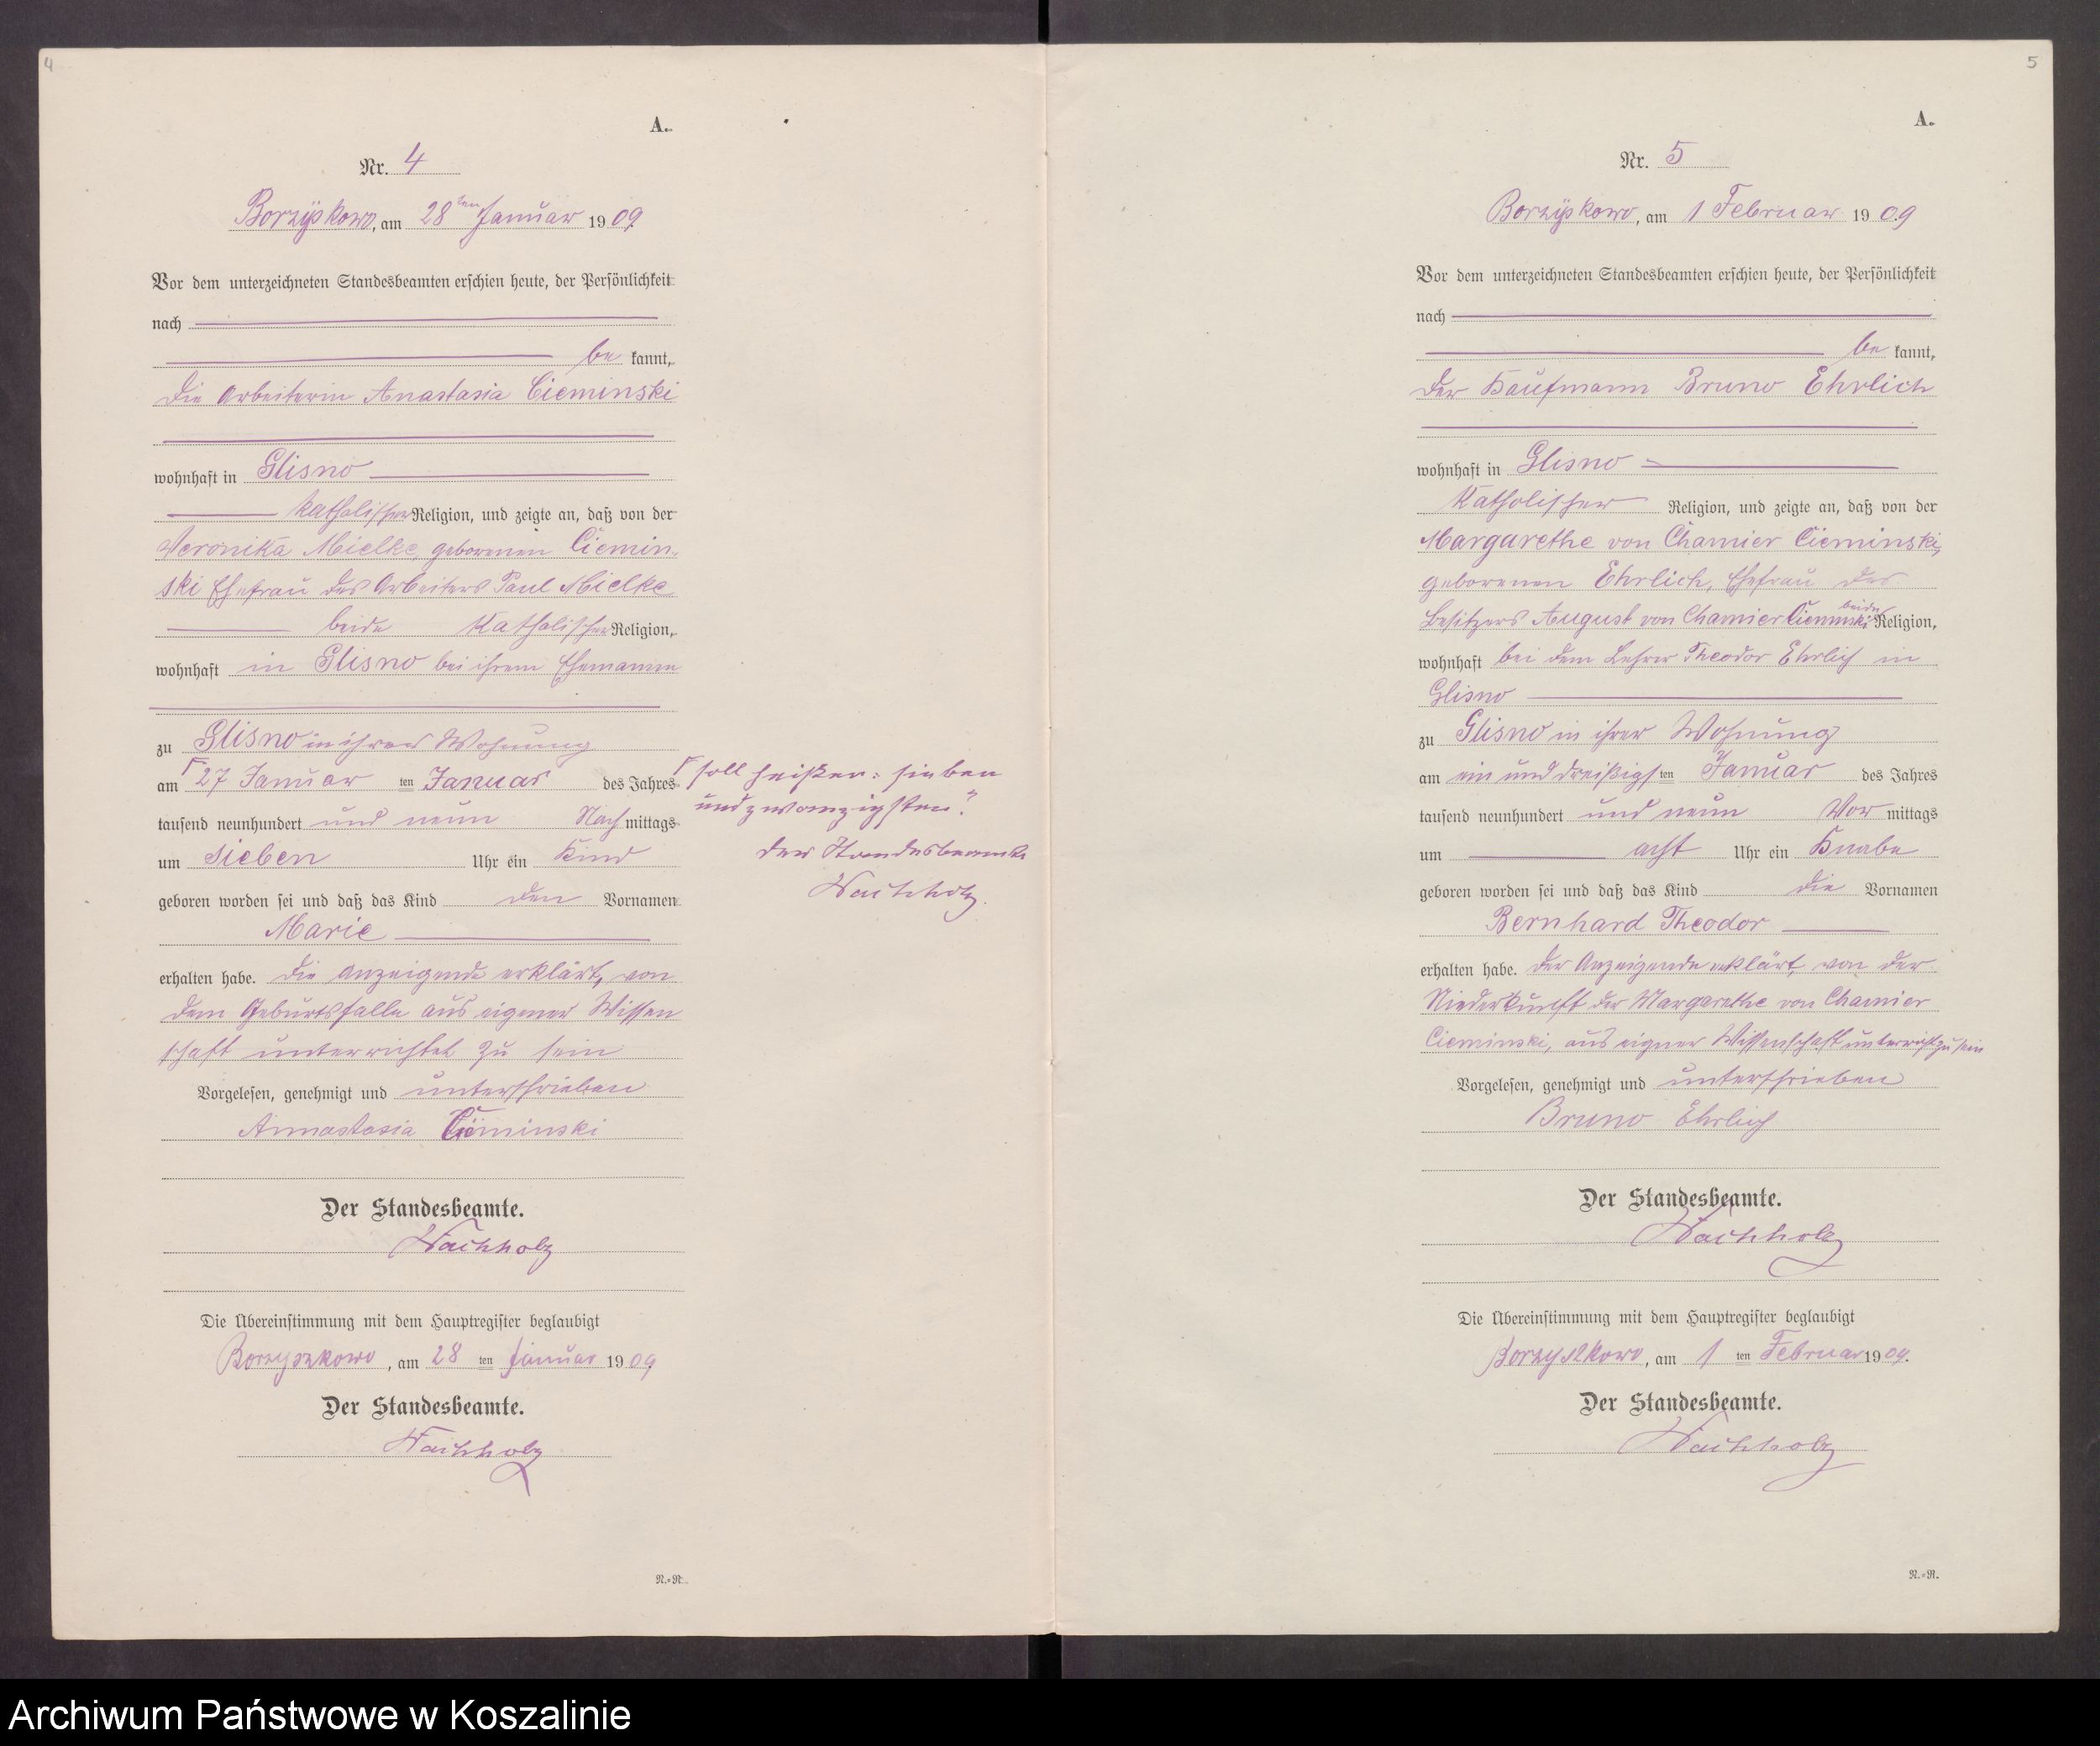 4
A.
Nr. 4
Borzÿskowo, am 28ten Januar 1909.
Vor dem unterzeichneten Standesbeamten erschien heute, der Persönlichkeit
nach
be kannt,
die Arbeiterin Anastasia Cieminski
wohnhaft in Glisno
katholischer Religion, und zeigte an, daß von der
Veronika Mielke, geborenen Ciemin-
ski Ehefrau des Arbeiters Paul Mielke
beide katholischer Religion,
wohnhaft in Glisno bei ihrem Ehemanne
zu Glisno in ihrer Wohnung
am 27 Januar ten Januar des Jahres
tausend neunhundert und neun Nach mittags
um sieben Uhr ein Kind
geboren worden sei und daß das Kind den Vornamen
Marie
erhalten habe. Die Anzeigende erklärt, von
dem Geburtsfalle aus eigener Wissen
schaft unterrichtet zu sein
Vorgelesen, genehmigt und unterschrieben
Annastasia Cieminski
Der Standesbeamte.
Wachholz
Die Übereinstimmung mit dem Hauptregister beglaubigt
Borzyszkowo, am 28 ten Januar 1909.
Der Standesbeamte.
Wachholz
N.=R.
soll heißen: sieben
und zwanzigsten."
Der Standesbeamte
Wachholz.
5
A.
Nr. 5
Borzÿskowo, am 1 Februar 1909
Vor dem unterzeichneten Standesbeamten erschien heute, der Persönlichkeit
nach
be kannt,
der Kaufmann Bruno Ehrlich
wohnhaft in Glisno
katholischer Religion, und zeigte an, daß von der
Margarethe von Chamier Cieminski,
geborenen Ehrlich, Ehefrau des
Besitzers August von Chamier Cieminski beide Religion,
wohnhaft bei dem Lehrer Theodor Ehrlich in
Glisno
zu Glisno in ihrer Wohnung
am ein und dreißigs ten Januar des Jahres
tausend neunhundert und neun Vor mittags
um acht Uhr ein Knabe
geboren worden sei und daß das Kind die Vornamen
Bernhard Theodor
erhalten habe. Der Anzeigende erklärt, von der
Niederkunft der Margarethe von Chamier
Cieminski, aus eigner Wissenschaft unterricht zu sein
Vorgelesen, genehmigt und unterschrieben
Bruno Ehrlich
Der Standesbeamte.
Wachholz
Die Übereinstimmung mit dem Hauptregister beglaubigt
Borzyszkowo, am 1 ten Februar 1909.
Der Standesbeamte.
Wachholz
N.=R.
Archiwum Państwowe w Koszalinie